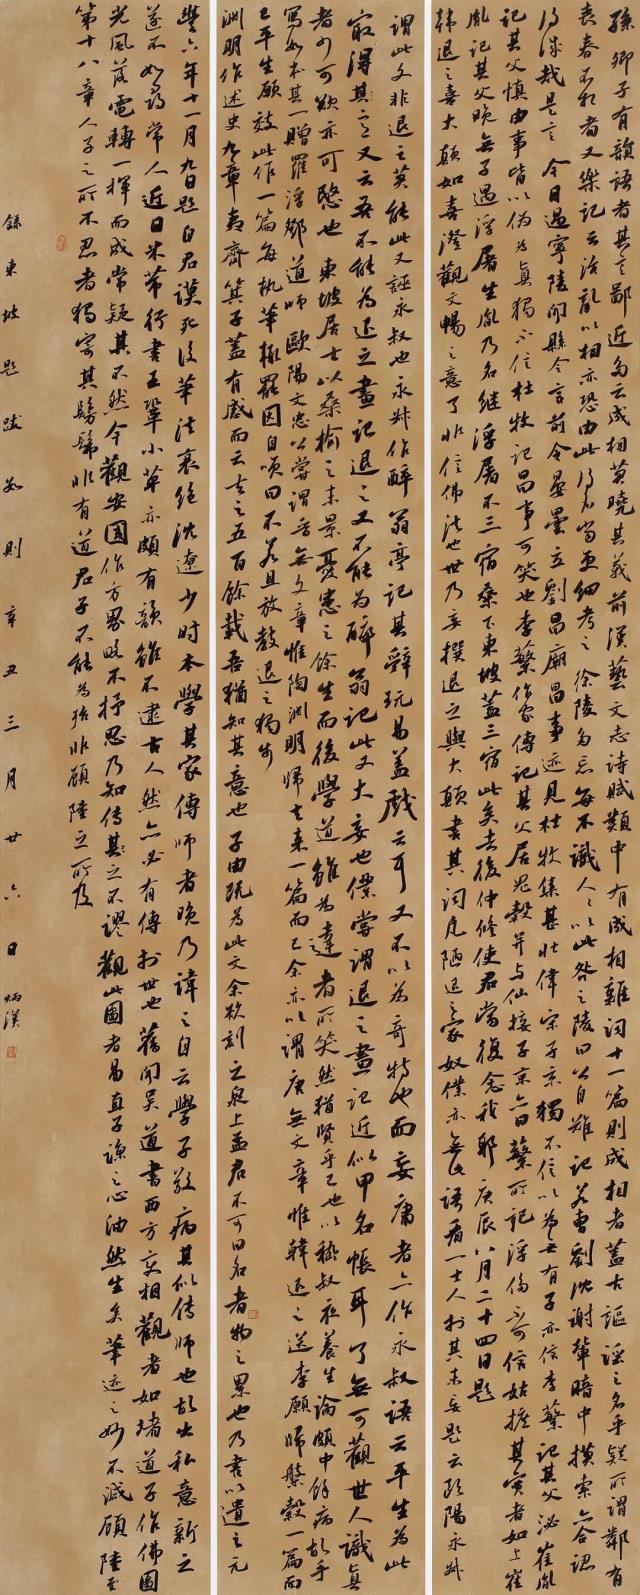 孫卿子有韻語者其言鄙近多云成相莫曉其義前漢藝文志詩賦類中有成相雜詞十一篇則成相者蓋古謳謠之名乎疑所謂鄰有
喪舂不相者又樂記云治亂以相亦恐由此得名當更細考之 徐陵多忘每不識人人以此咎之陵曰公自難記若曹劉沈謝輩暗中摸索亦合認
得誠哉是言 今日過寧陵聞縣令言前令晏曇立劉昌廟昌事迹見杜牧集甚壯偉宋子京獨不信以為無有子亦信李蘩記其父泌崔胤
記其父慎由事皆以偽為真獨不信杜牧記昌事可笑也李蘩作家傳記其父居鬼谷并与仙接子京亦曰蘩所記浮侈不可信姑摭其實者如上崔
胤記其父晚無子遇浮屠生胤乃名緇 浮屠不三宿桑下東坡蓋三宿此矣去後仲修使君當復念我耶 庚辰八月二十四日題
韓退之喜大顛如喜澄觀文暢之意了非信佛法也世乃妄撰退之與大顛書其詞凡陋退之家奴僕亦無此語有一士人於其末妄題云歐陽永叔
謂此文非退之莫能此又誣永叔也永叔作醉翁亭記其辭玩易蓋戲云耳又不以為奇特也而妄庸者亦作永叔語云平生為此
最得其意又云吾不能為退之畫記退之又不能為醉翁記此又大妄也僕嘗謂退之畫記近似甲名帳耳了無可觀世人識真
者少可歎亦可愍也 東坡居士以桑榆之末景憂患之餘生而後學道雖為達者所笑然猶賢乎已也以嵇叔夜養生論頗中余病故手
寫數本其一贈羅浮鄧道師 歐陽文忠公嘗謂晉無文章惟陶淵明歸去來一篇而已余亦以謂唐無文章惟韓退之送李愿歸盤谷一篇而
已平生願效此作一篇每執筆輒罷因自笑曰不若且放教退之獨步
淵明作述史九章夷齊箕子蓋有感而云去之五百餘載吾猶知其意也 子由既為此文余欲刻之泉上孟君不可曰名者物之累也乃書以遺之 元
豐六年十一月九日題 自君謨死後筆法衰絕沈遼少時本學其家傳師者晚乃諱之自云學子敬病其似傳師也故出私意新之
遂不如尋常人近日米芾行書王鞏小草亦頗有韻雖不逮古人然亦必有傳於世也 舊聞吳道書西方變相觀者如堵道子作佛圖
光風落電轉一揮而成常疑其不然今觀安國作方界略不抒思乃知傳者之不謬 觀此圖者易直子諒之心油然生矣筆迹之妙不減顧陸至
第十八章人子之所不忍者獨寄其髣髴非有道君子不能為殆非顧陸之所及
錄東坡題跋數則辛丑三月廿六日 炳漢